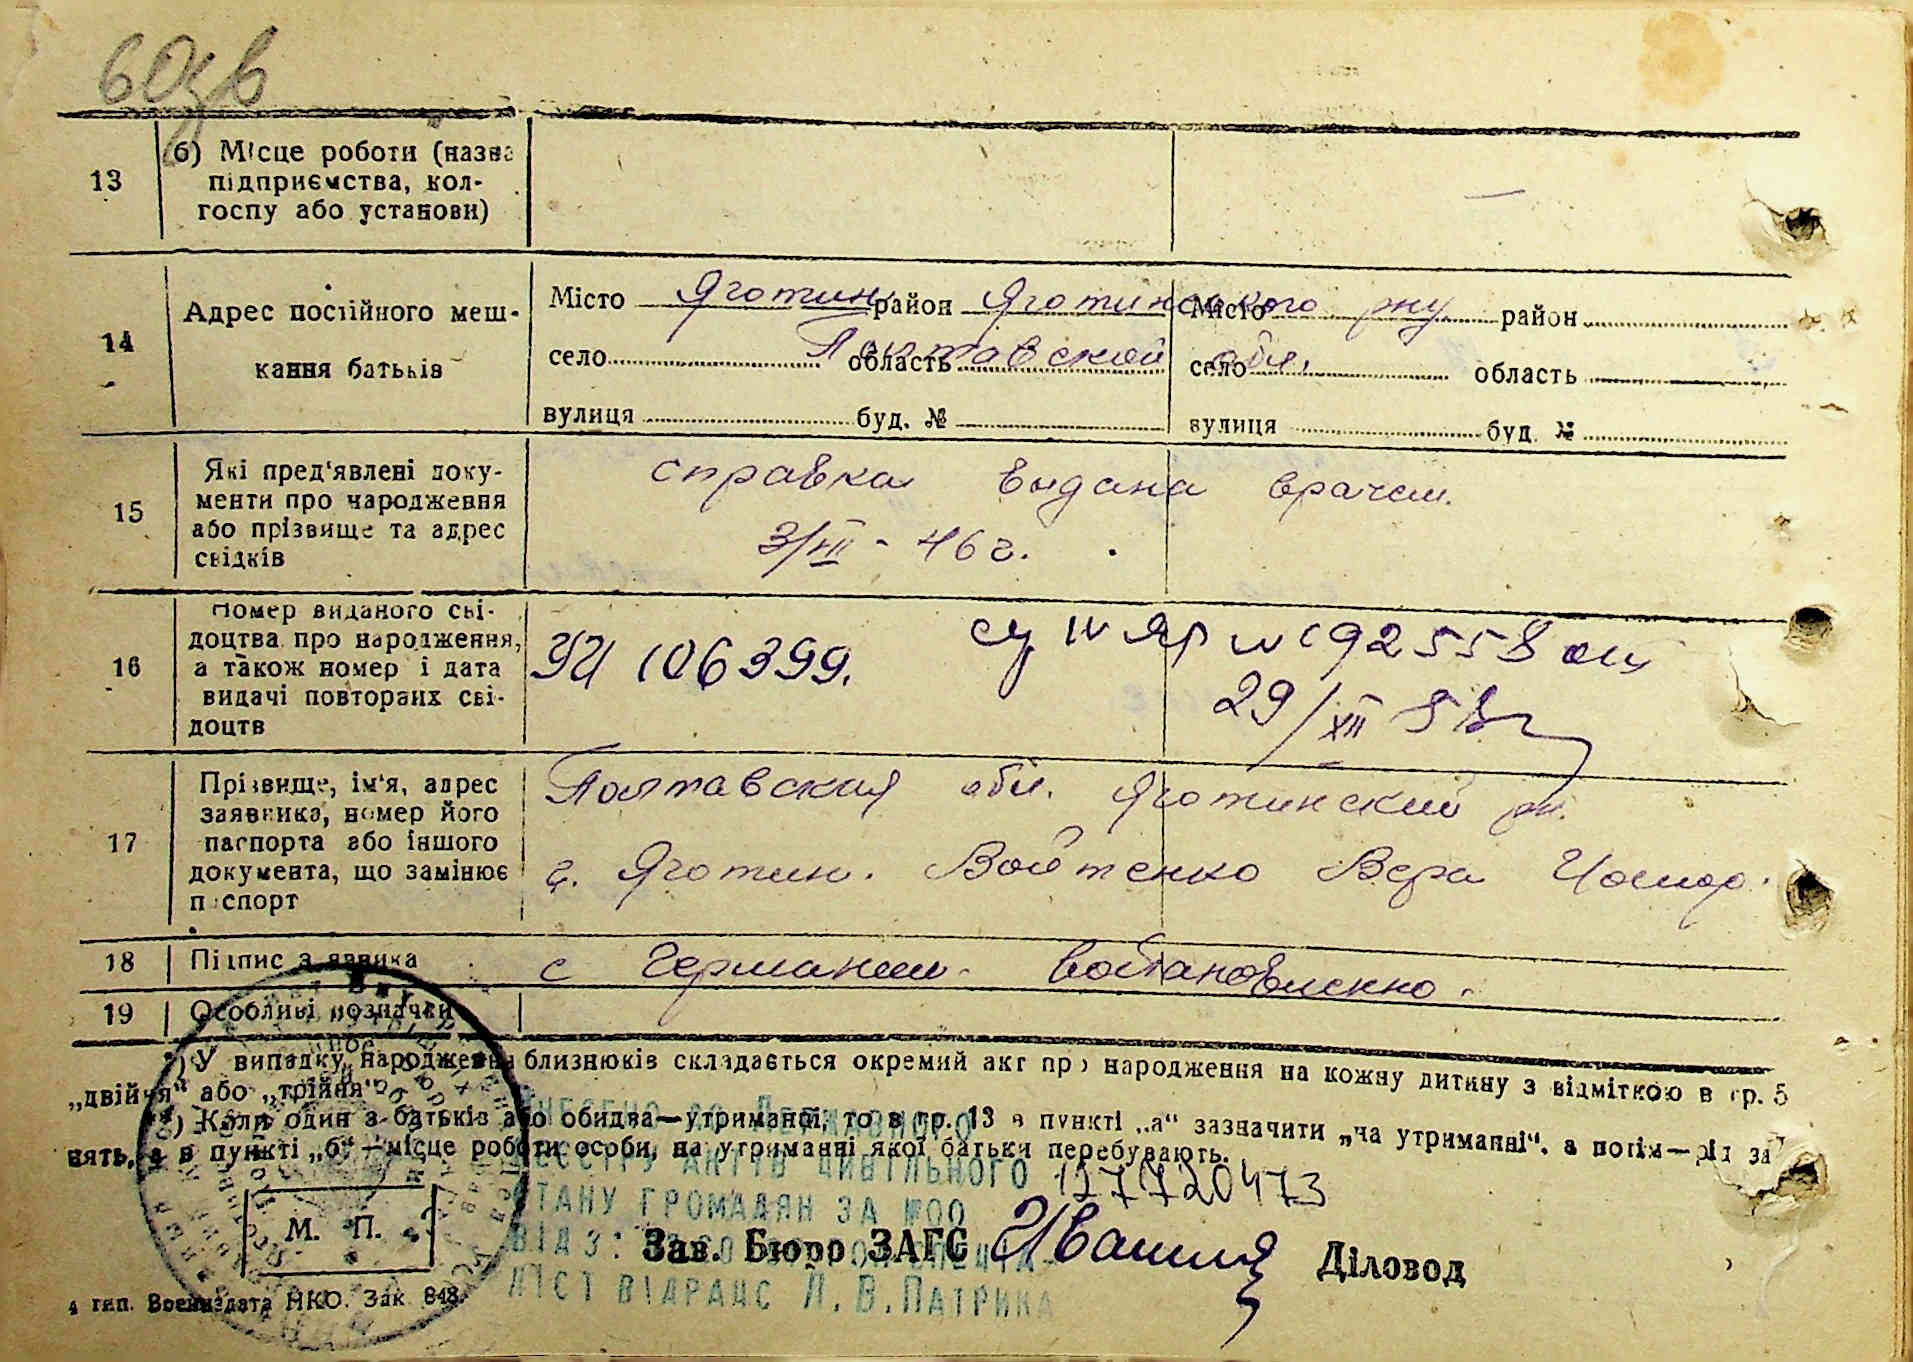 60зв
13
б) Місце роботи (назва
підприємства, кол-
госпу або установи)
14
Адрес постійного меш-
кання батьків
Місто Яготин район Яготинського рну
село область Полтавской обл.
вулиця буд. №
Місто район
село область
вулиця буд. №
15
Які пред'явлені доку-
менти про народження
або прізвище та адрес
свідків
справка выдана врачем.
3/VII - 46 г.
16
Номер виданого сві-
доцтва про народження,
а також номер і дата
видачі повторних сві-
доцтв
УИ 106399.
192558
29/XII
17
Прізвище, ім'я, адрес
заявника, номер його
паспорта або іншого
документа, що замінює
паспорт
Полтавская обл. Яготинский рн.
г. Яготин. Войтенко Вера
18
Підпис заявника
с Германии.
19
Особливі позначки
*) У випадку народження близнюків складається окремий акт про народження на кожну дитину з відміткою в гр. 5
„двійня“ або „трійня“
*) Коли один з батьків або обидва—утриманці, то в гр. 13 в пункті „а“ зазначити „на утриманні“, а потім—рід за-
нять, а в пункті „б“—місце роботи особи, на утриманні якої батьки перебувають.
ВНЕСЕНО до Державного
РЕЄСТРУ АКТІВ ЦИВІЛЬНОГО
СТАНУ ГРОМАДЯН ЗА №00 127720473
ВІДЗ:
Л. В. ПАТРИКА
М. П.
Зав. Бюро ЗАГС
Діловод
4 тип. Воениздата НКО. Зак. 848.